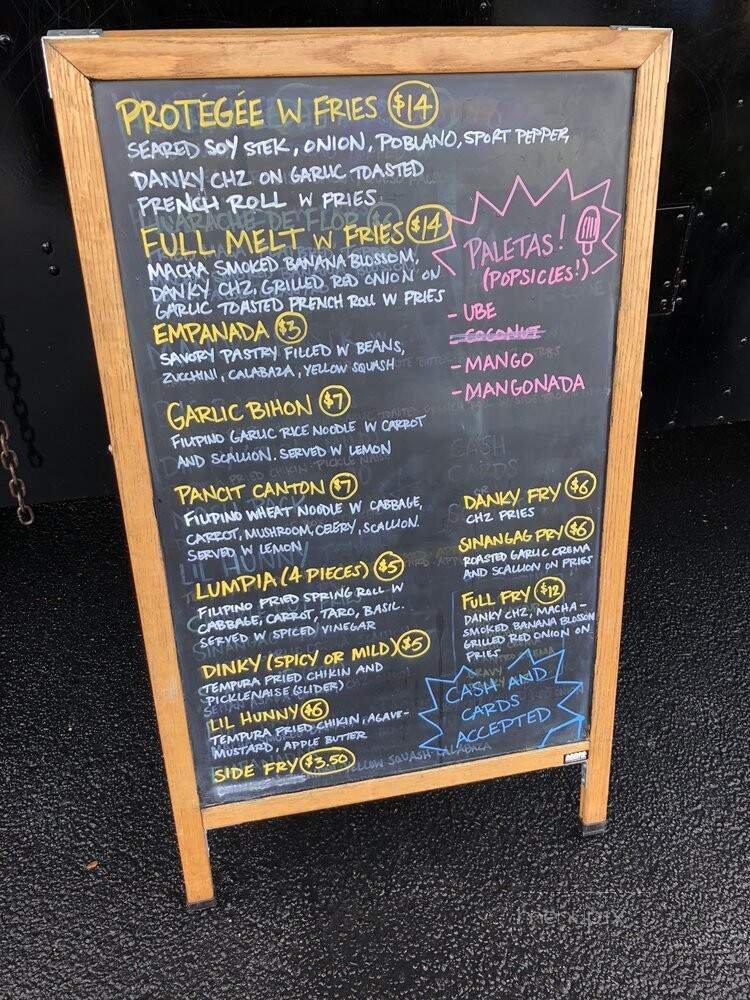 PROTÉGÉE W FRIES $14
SEARED SOY STEK, ONION, POBLANO, SPORT PEPPER,
DANKY CHZ ON GARLIC TOASTED
FRENCH ROLL W FRIES.
FULL MELT W FRIES $14
MACHA SMOKED BANANA BLOSSOM,
DANKY CHZ, GRILLED RED ONION ON
GARLIC TOASTED FRENCH ROLL W FRIES
EMPANADA $3
SAVORY PASTRY FILLED W BEANS,
ZUCCHINI, CALABAZA, YELLOW SQUASH
GARLIC BIHON $7
FILIPINO GARLIC RICE NOODLE W CARROT
AND SCALLION. SERVED W LEMON
PANCIT CANTON $7
FILIPINO WHEAT NOODLE W CABBAGE,
CARROT, MUSHROOM, CELERY, SCALLION.
SERVED W LEMON
LUMPIA (4 PIECES) $5
FILIPINO FRIED SPRING ROLL W
CABBAGE, CARROT, TARO, BASIL.
SERVED W SPICED VINEGAR
DINKY (SPICY OR MILD) $5
TEMPURA FRIED CHIKIN AND
PICKLENAISE (SLIDER)
LIL HUNNY $6
TEMPURA FRIED CHIKIN, AGAVE-
MUSTARD, APPLE BUTTER
SIDE FRY $3.50
PALETAS!
(POPSICLES!)
- UBE
COCONUT
- MANGO
- MANGONADA
DANKY FRY $6
CHZ FRIES
SINANGAG FRY $6
ROASTED GARLIC CREMA
AND SCALLION ON FRIES
FULL FRY $12
DANKY CHZ, MACHA-
SMOKED BANANA BLOSSOM
GRILLED RED ONION ON
FRIES
CASH AND
CARDS
ACCEPTED